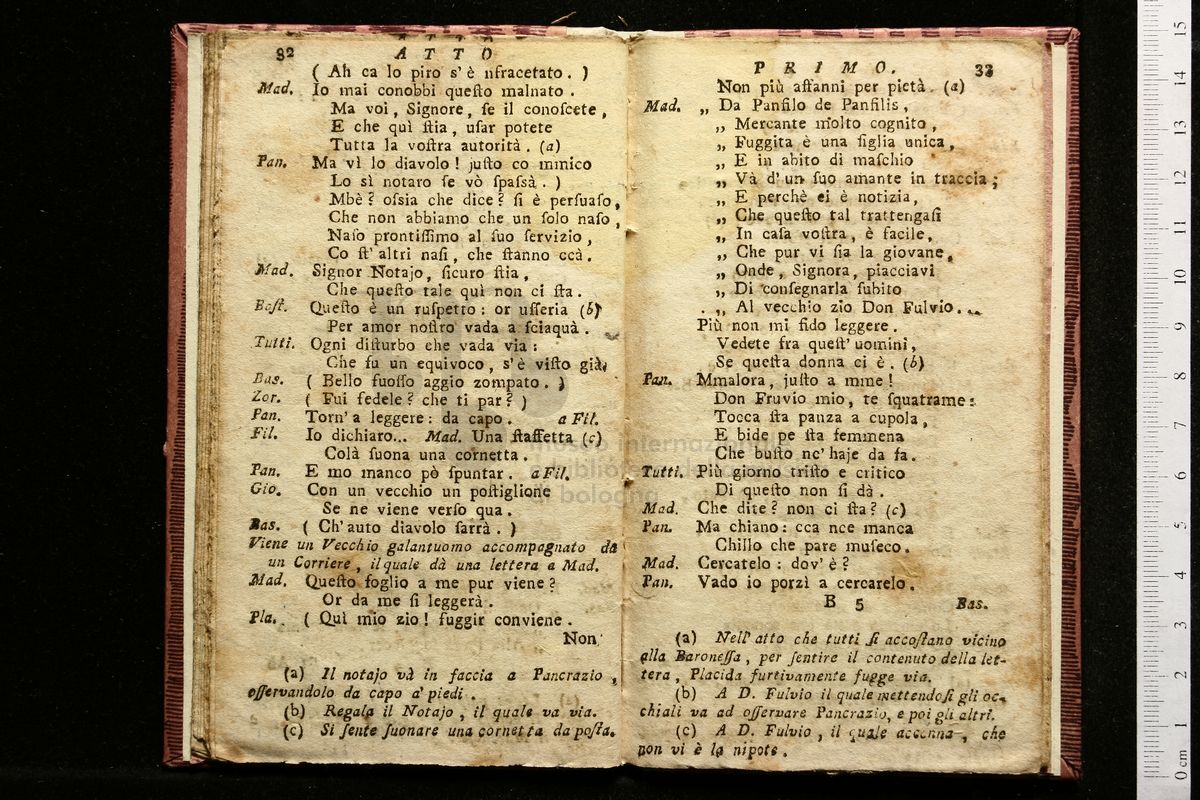 32 ATTO
( Ah ca lo piro s'è nfracetato. )
Mad. Io mai conobbi queſto malnato.
Ma voi, Signore, ſe il conoſcete,
E che quì ſtia, uſar potete
Tutta la voſtra autorità. (a)
Pan. Ma vì lo diavolo! juſto co mmico
Lo sì notaro ſe vò ſpaſsà. )
Mbè? oſsia che dice? ſi è perſuaſo,
Che non abbiamo che un ſolo naſo,
Naſo prontiſſimo al ſuo ſervizio,
Co ſt'altri naſi, che ſtanno ccà.
Mad. Signor Notajo, ſicuro ſtia,
Che queſto tale quì non ci ſta.
Baſt. Queſto è un ruſpetto: or uſſeria (b)
Per amor noſtro vada a ſciaquà.
Tutti. Ogni diſturbo che vada via:
Che fu un equivoco, s'è viſto già,
Bas. ( Bello fuoſſo aggio zompato. )
Zor. ( Fui fedele? che ti par? )
Pan. Torn'a leggere: da capo. a Fil.
Fil. Io dichiaro... Mad. Una ſtaffetta (c)
Colà ſuona una cornetta.
Pan. E mo manco pò ſpuntar. a Fil.
Gio. Con un vecchio un poſtiglione
Se ne viene verſo qua.
Bas. ( Ch'auto diavolo ſarrà. )
Viene un Vecchio galantuomo accompagnato da
un Corriere, il quale dà una lettera a Mad.
Mad. Queſto foglio a me pur viene?
Or da me ſi leggerà.
Pla. ( Quì mio zio! fuggir conviene.
Non
(a) Il notajo và in faccia a Pancrazio,
oſſervandolo da capo a' piedi.
(b) Regala il Notajo, il quale va via.
(c) Si ſente ſuonare una cornetta da poſta.
PRIMO. 33
Non più affanni per pietà. (a)
Mad. „ Da Panfilo de Panfilis,
„ Mercante molto cognito,
„ Fuggita è una figlia unica,
„ E in abito di maſchio
„ Và d'un ſuo amante in traccia;
„ E perchè ei è notizia,
„ Che queſto tal trattengaſi
„ In caſa voſtra, è facile,
„ Che pur vi ſia la giovane,
„ Onde, Signora, piacciavi
„ Di conſegnarla ſubito
„ Al vecchio zio Don Fulvio...
Più non mi fido leggere.
Vedete fra queſt'uomini,
Se queſta donna ci è. (b)
Pan. Mmalora, juſto a mme!
Don Fruvio mio, te ſquatrame:
Tocca ſta panza a cupola,
E bide pe ſta femmena
Che buſto nc'haje da fa.
Tutti. Più giorno triſto e critico
Di queſto non ſi dà.
Mad. Che dite? non ci ſta? (c)
Pan. Ma chiano: cca nce manca
Chillo che pare muſeco.
Mad. Cercatelo: dov'è?
Pan. Vado io porzì a cercarelo.
B 5 Bas.
(a) Nell'atto che tutti ſi accoſtano vicino
alla Baroneſſa, per ſentire il contenuto della let-
tera, Placida furtivamente fugge via.
(b) A D. Fulvio il quale mettendoſi gli oc-
chiali va ad oſſervare Pancrazio, e poi gli altri.
(c) A D. Fulvio, il quale accenna, che
non vi è la nipote.
museo internazionale
e biblioteca della musica
di bologna
0 cm 1 2 3 4 5 6 7 8 9 10 11 12 13 14 15